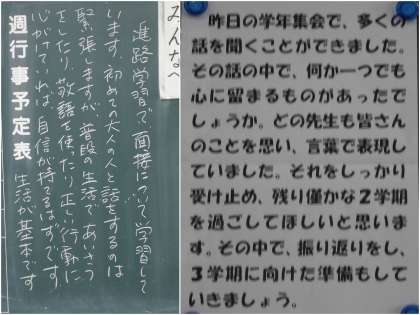 みんなへ
進路学習で、面接について学習して
います。初めての大人の人と話をするのは
緊張しますが、普段の生活であいさつ
をしたり、敬語を使ったり正しい行動に
心がけていれば、自信が持てるはずです。
生活が基本です
週行事予定表
昨日の学年集会で、多くの
話を聞くことができました。
その話の中で、何か一つでも
心に留まるものがあったで
しょうか。どの先生も皆さん
のことを思い、言葉で表現し
ていました。それをしっかり
受け止め、残り僅かな２学期
を過ごしてほしいと思いま
す。その中で、振り返りをし、
３学期に向けた準備もして
いきましょう。